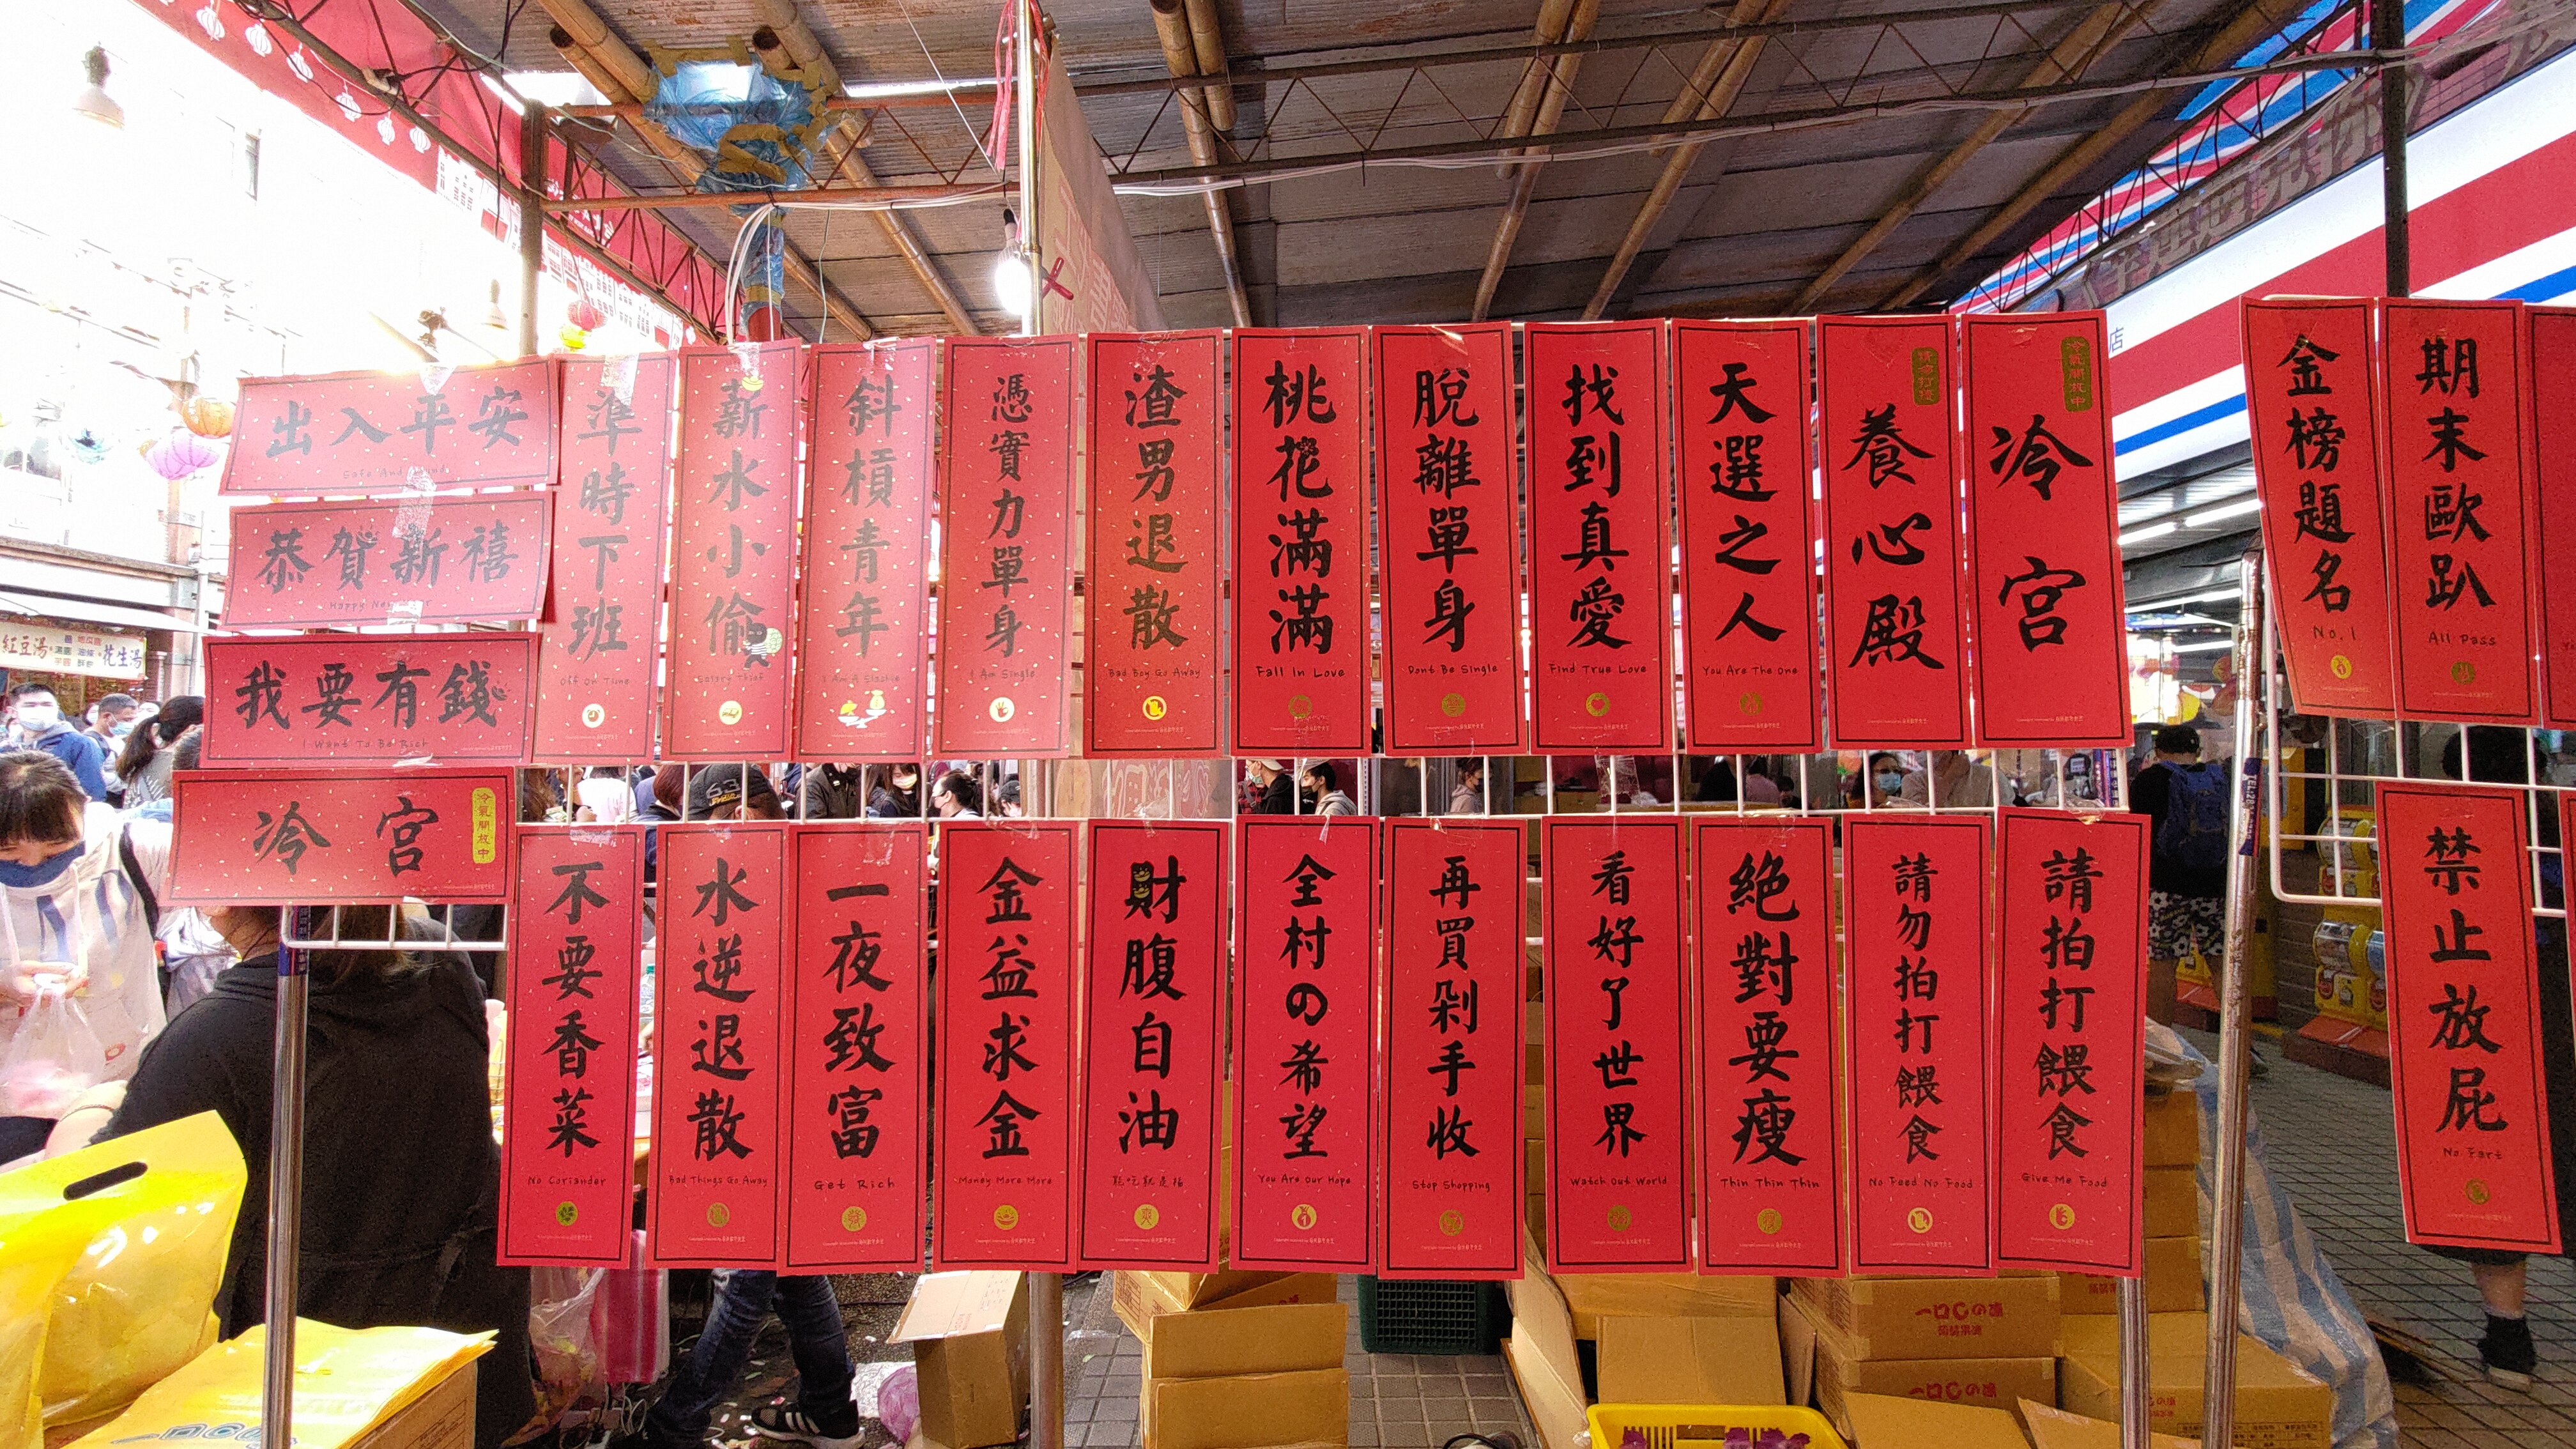 出入平安
恭賀新禧
Happy New Year
我要有錢
I Want To Be Rich
冷宮
冷氣開放中
準時下班
Off On Time
薪水小偷
Salary Thief
斜槓青年
I Am A Slashie
憑實力單身
I Am Single
渣男退散
Bad Boy Go Away
桃花滿滿
Fall In Love
脫離單身
Dont Be Single
找到真愛
Find True Love
天選之人
You Are The One
養心殿
冷宮
冷氣開放中
金榜題名
No.1
期末歐趴
All Pass
不要香菜
No Coriander
水逆退散
Bad Things Go Away
一夜致富
Get Rich
金益求金
Money More More
財腹自油
能吃就是福
全村の希望
You Are Our Hope
再買剁手收
Stop Shopping
看好了世界
Watch Out World
絕對要瘦
Thin Thin Thin
請勿拍打餵食
No Feed No Food
請拍打餵食
Give Me Food
禁止放屁
No Fart
紅豆湯
花生湯
店